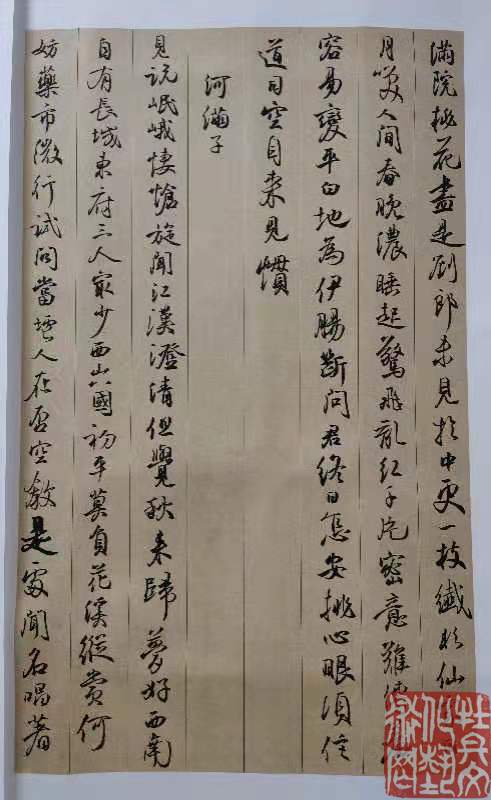 滿院桃花盡是劉郎未見於中更一枝纖軟仙
月咲人間春晚濃睡起驚飛亂紅千片密意難傳
容易變平白地為伊腸斷問君終日怎安排心眼須信
道司空自來見慣
河滿子
見說岷峨悽愴旋聞江漢澄清但覺秋來歸夢好西南
自有長城東府三人最少西山八國初平莫負花溪縱賞何
妨藥市微行試問當壚人在否空教是處聞名唱著